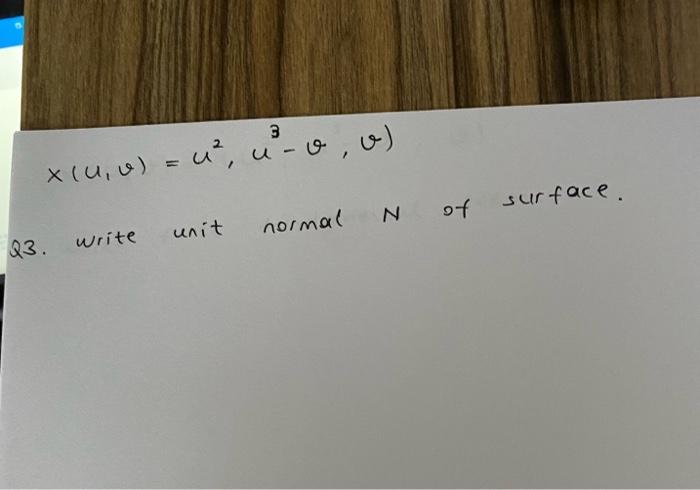 x(u,v) = u², u³-v, v)
Q3. Write unit normal N of surface.